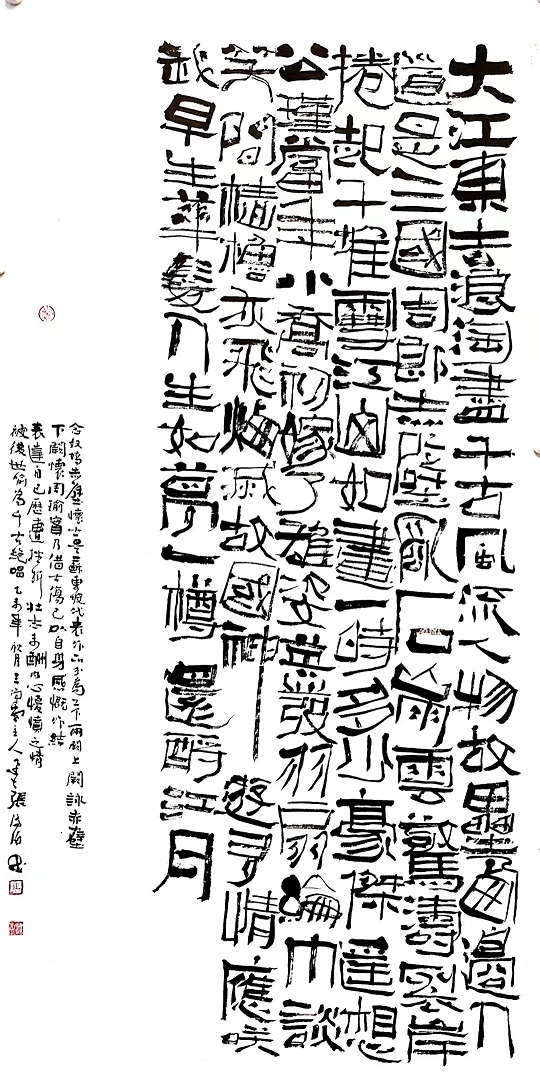 大江東去浪淘盡千古風流人物故壘西邊人
道是三國周郎赤壁亂石崩雲驚濤裂岸
捲起千堆雪江山如畫一時多少豪傑遙想
公瑾當年小喬初嫁了雄姿英發羽扇綸巾談
笑間檣櫓灰飛煙滅故國神遊多情應咲
我早生華髮人生如夢一樽還酹江月
念奴嬌赤壁懷古是蘇東坡代表作品分為上下兩闋上闋詠赤壁
下闋懷周瑜實乃借古傷己以自身感慨作結
表達自己歷遭挫折壯志未酬內心憤之情
被後世尚為千古絕唱乙未年秋月主人張